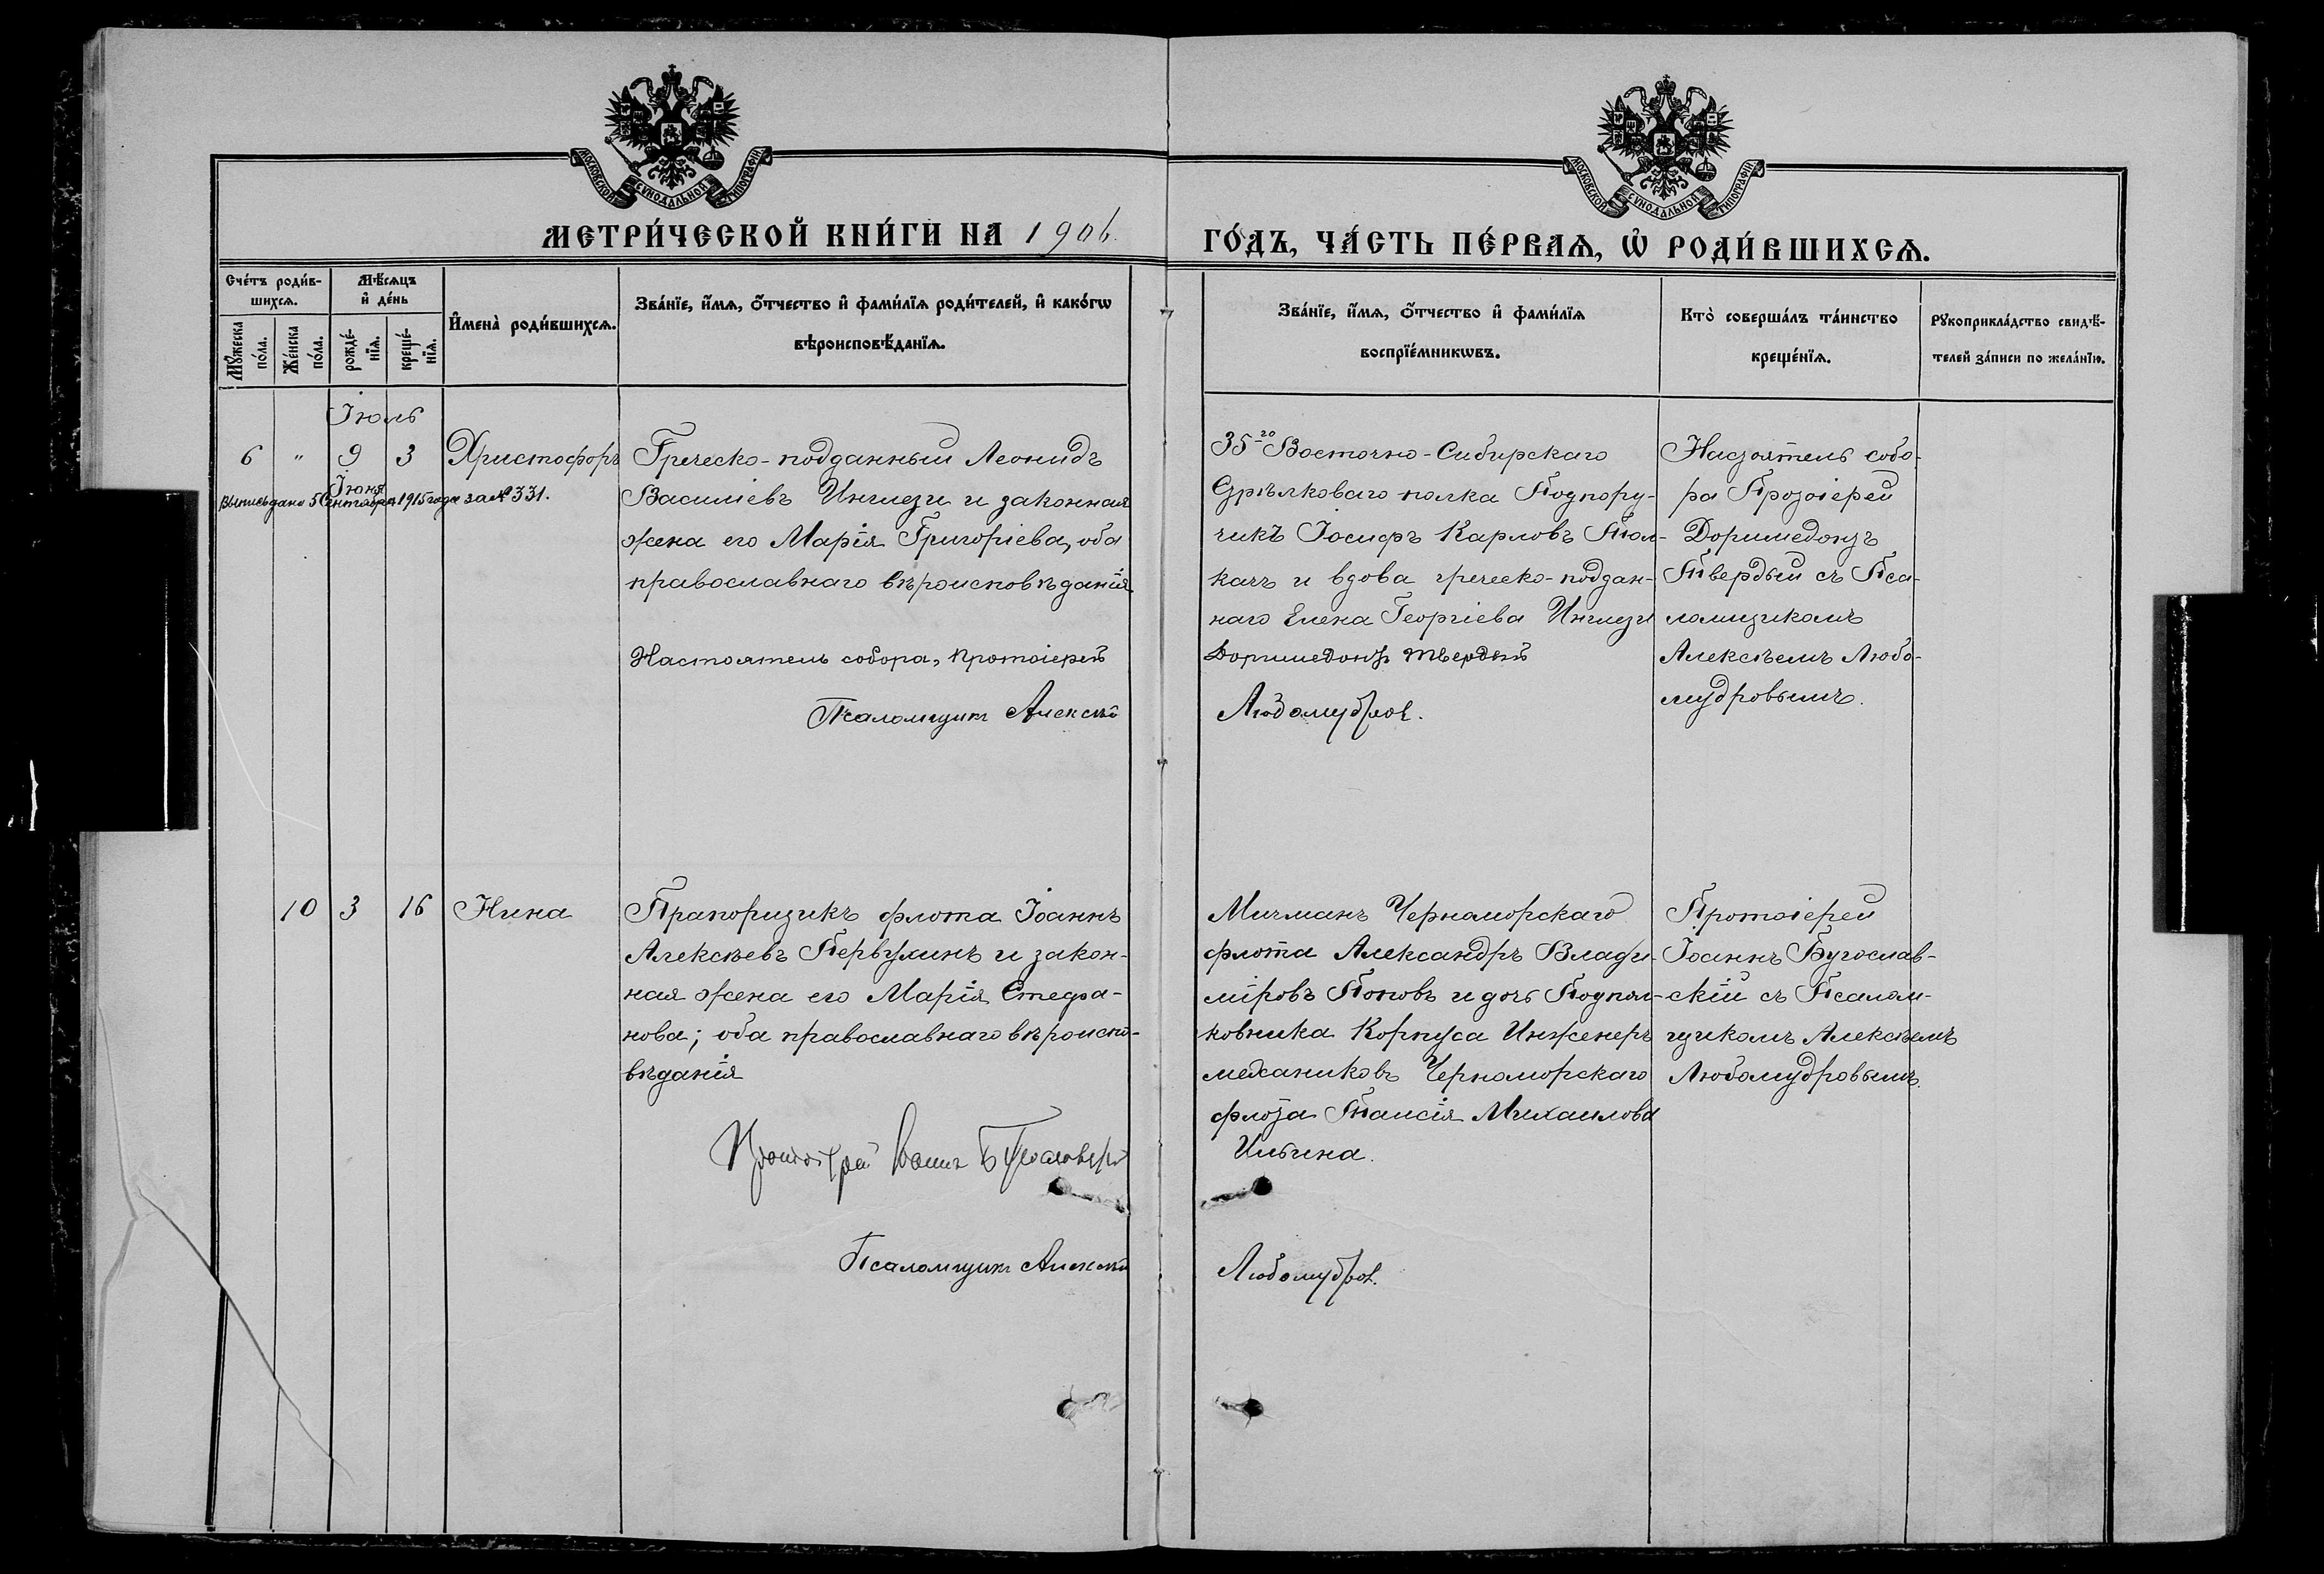 МОСКОВСКОЙ СѴНОДАЛЬНОЙ ТИПОГРАФІИ
МОСКОВСКОЙ СѴНОДАЛЬНОЙ ТИПОГРАФІИ
МЕТРИ́ЧЕСКОЙ КНИ́ГИ НА 1906
ГО́ДЪ, ЧА́СТЬ ПЕ́РВАѦ, Ѡ҆ РОДИ́ВШИХСѦ.
Сче́тъ роди́в-
шихсѧ.
Мꙋ́жеска
по́ла.
Же́нска
по́ла.
Мѣ́сѧцъ
и҆ де́нь
рожде́-
нїѧ.
креще́-
нїѧ.
И҆мена̀ роди́вшихсѧ.
Зва́нїе, и҆́мѧ, ѻ҆́тчество и҆ фами́лїѧ роди́телей, и҆ како́гѡ
вѣроисповѣ́данїѧ.
Зва́нїе, и҆́мѧ, ѻ҆́тчество и҆ фами́лїѧ
воспрїе́мникѡвъ.
Кто̀ соверша́лъ та́инство
креще́нїѧ.
Рꙋкоприкла́дство свидѣ́-
телей за́писи по жела́нїю.
Іюль
6 " 9 3 Христофоръ
Іюня
Выпись дана 5 Сентября 1915 года за № 331.
Греческо-подданный Леонидъ
Василіевъ Инглези и законная
жена его Марія Григоріева, оба
православнаго вѣроисповѣданія
Настоятель собора, протоіерей
Псаломщикъ Алексѣй
35-го Восточно-Сибирскаго
Стрѣлковаго полка Подпору-
чикъ Іосифъ Карловъ Тол-
качъ и вдова греческо-поддан-
наго Елена Георгіева Инглези
Доримедонтъ Твердый
Любомудровъ.
Настоятель собо-
ра Протоіерей
Доримедонтъ
Твердый съ Пса-
ломщикомъ
Алексѣемъ Любо-
мудровымъ.
10 3 16 Нина
Прапорщикъ флота Іоаннъ
Алексѣевъ Первухинъ и закон-
ная жена его Марія Стефа-
нова; оба православнаго вѣроиспо-
вѣданія
Протоіерей Іоаннъ Бугославскій
Псаломщикъ Алексѣй
Мичманъ Черноморскаго
флота Александръ Влади-
міровъ Поповъ и дочь Подпол-
ковника Корпуса Инженеръ
механиковъ Черноморскаго
флота Таисія Михаилова
Ильина.
Любомудровъ.
Протоіерей
Іоаннъ Бугослав-
скій съ Псалом-
щикомъ Алексѣемъ
Любомудровымъ.